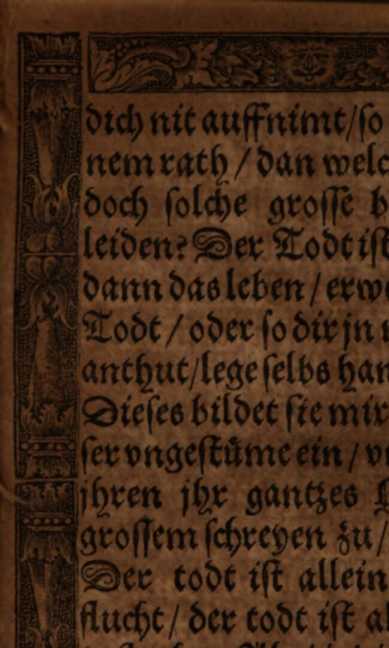 dich nit auffnimt/so
nem rath / dan welc
doch solche grosse b
leiden? Der Todt ist
dann das leben / erwe
Todt / oder so dir jn
anthut/lege selbs han
Dieses bildet sie mir
ser vngestüme ein / v
jhren jhr gantzes
grossem schreyen zu/
Der todt ist allein
flucht/ der todt ist al